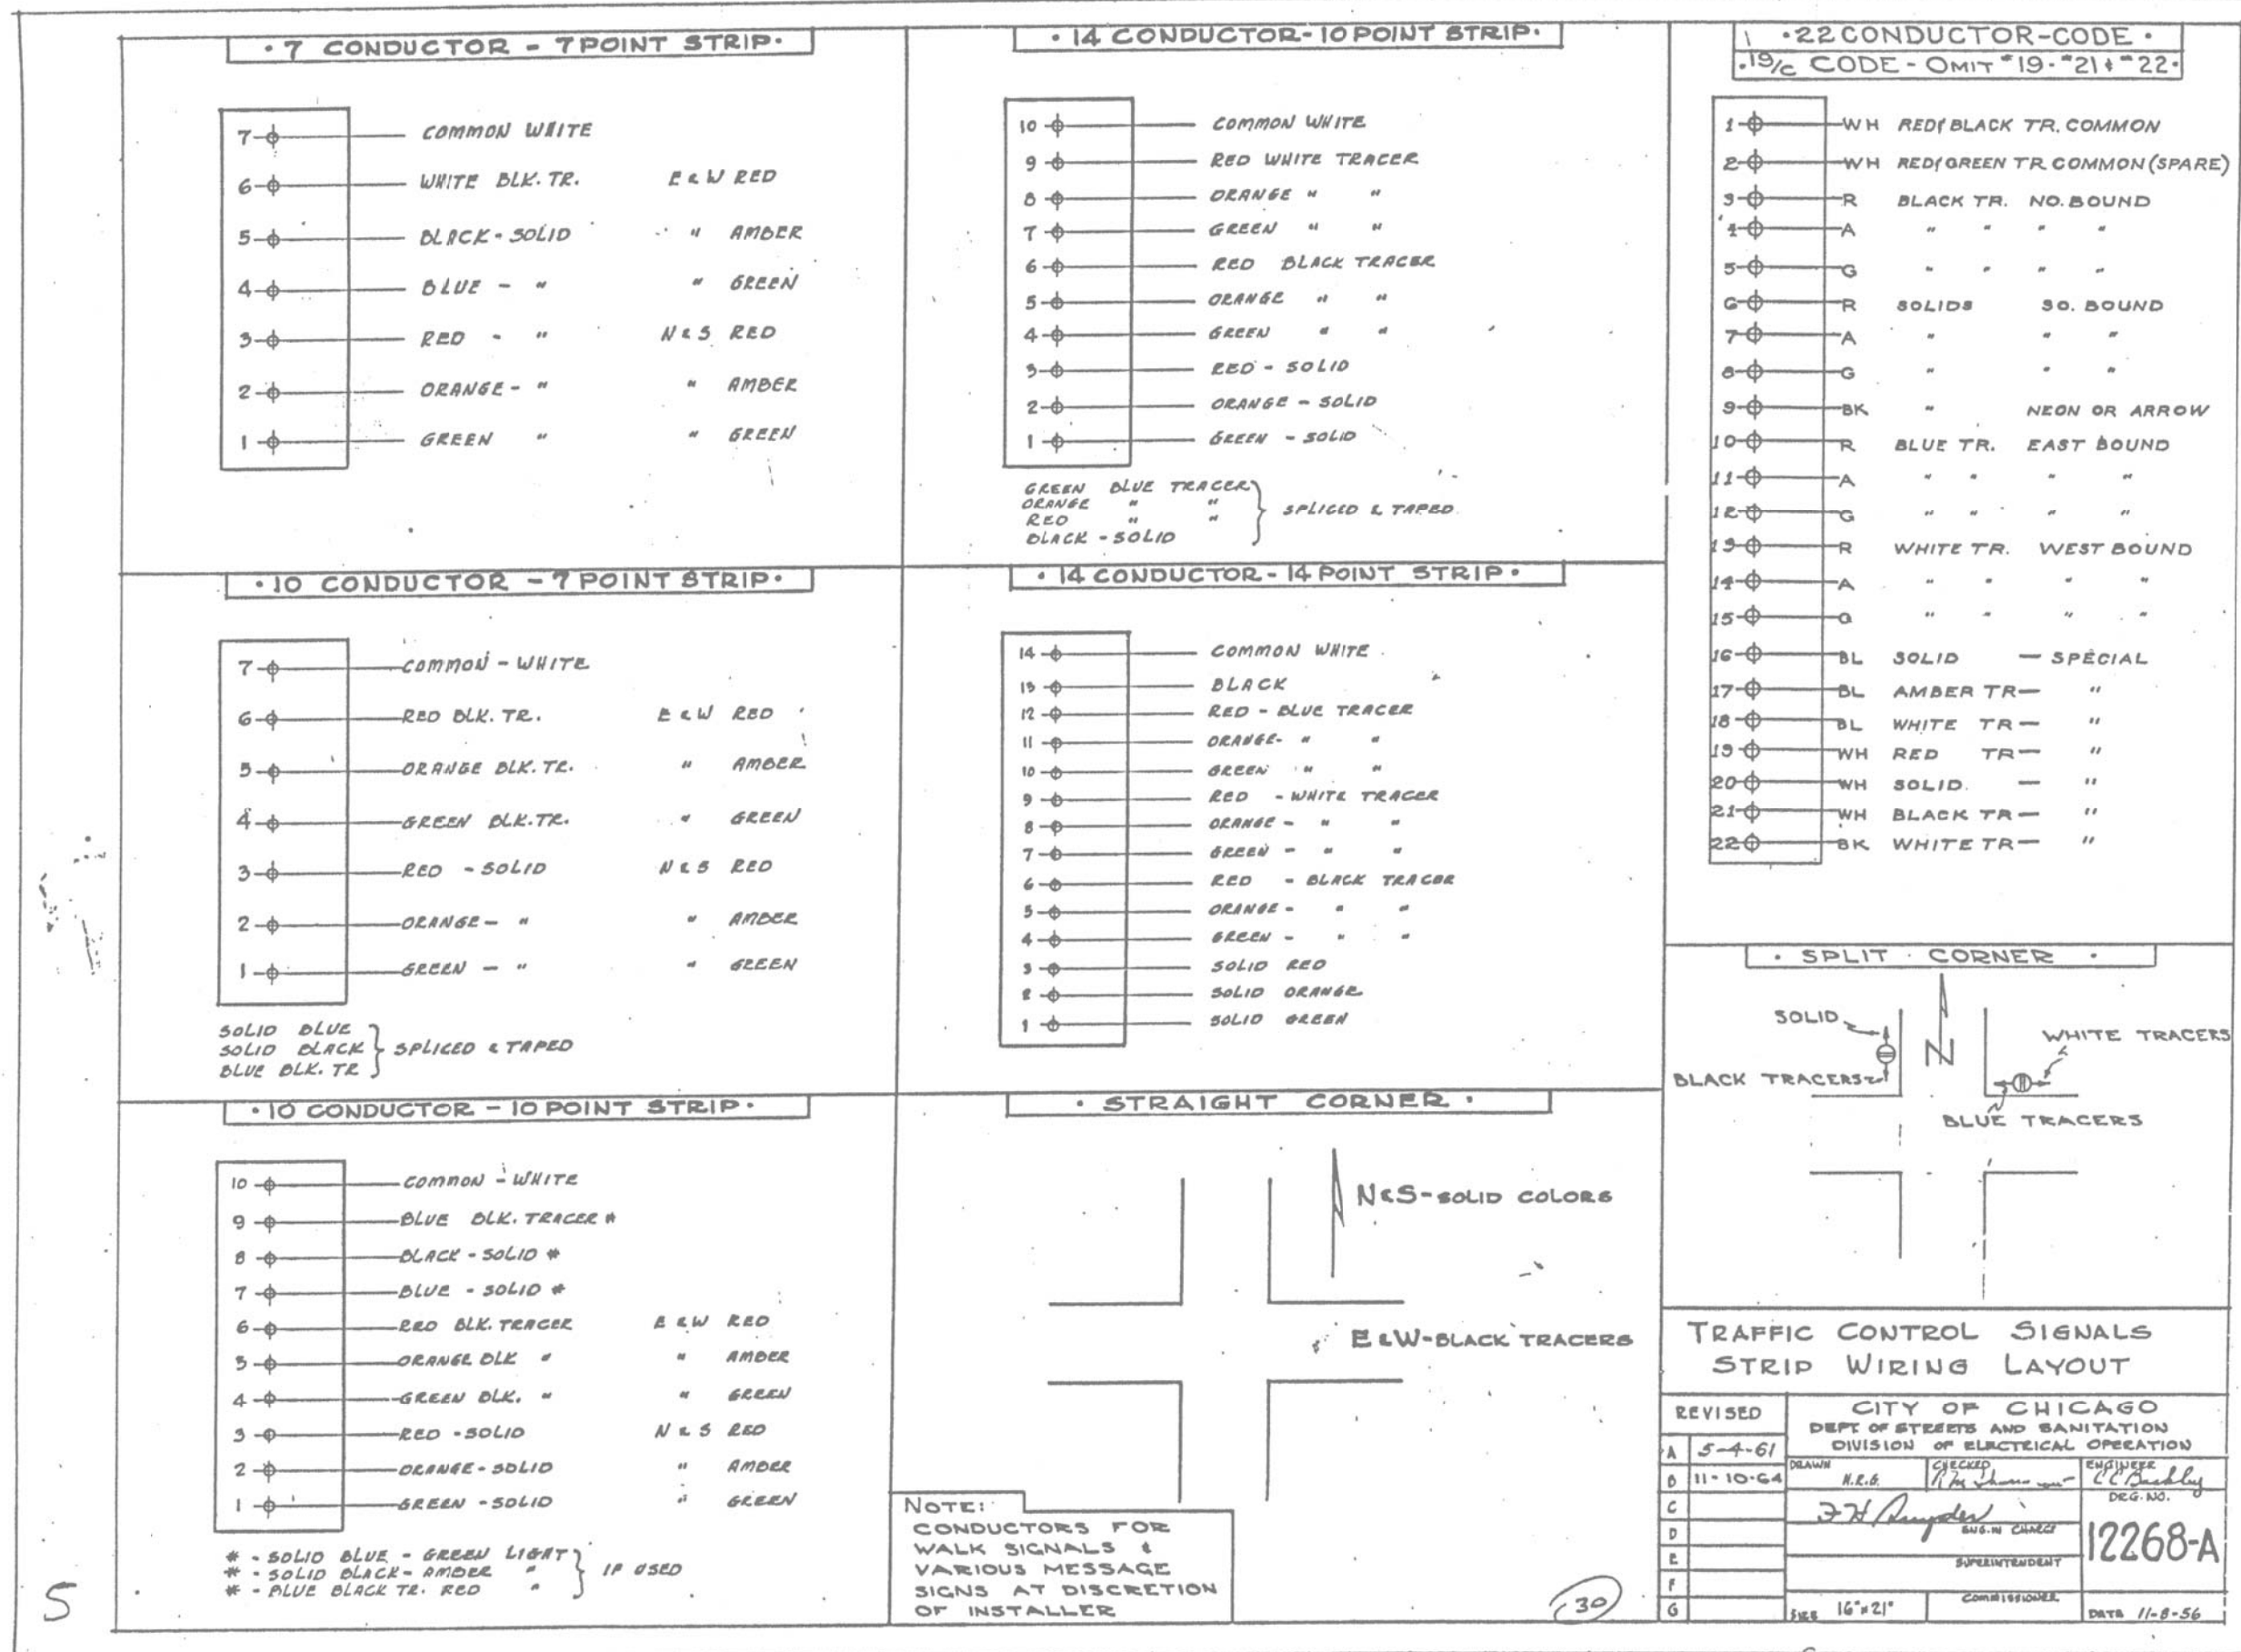 · 7 CONDUCTOR - 7 POINT STRIP ·
7 COMMON WHITE
6 WHITE BLK. TR. E & W RED
5 BLACK - SOLID " AMBER
4 BLUE - " " GREEN
3 RED - " N & S RED
2 ORANGE - " " AMBER
1 GREEN " " GREEN
· 10 CONDUCTOR - 7 POINT STRIP ·
7 COMMON - WHITE
6 RED BLK. TR. E & W RED
5 ORANGE BLK. TR. " AMBER
4 GREEN BLK. TR. " GREEN
3 RED - SOLID N & S RED
2 ORANGE - " " AMBER
1 GREEN - " " GREEN
SOLID BLUE
SOLID BLACK } SPLICED & TAPED
BLUE BLK. TR
· 10 CONDUCTOR - 10 POINT STRIP ·
10 COMMON - WHITE
9 BLUE BLK. TRACER #
8 BLACK - SOLID #
7 BLUE - SOLID #
6 RED BLK. TRACER E & W RED
5 ORANGE BLK " " AMBER
4 GREEN BLK. " " GREEN
3 RED - SOLID N & S RED
2 ORANGE - SOLID " AMBER
1 GREEN - SOLID " GREEN
# - SOLID BLUE - GREEN LIGHT
# - SOLID BLACK - AMBER " } IF USED
# - BLUE BLACK TR. RED "
· 14 CONDUCTOR - 10 POINT STRIP ·
10 COMMON WHITE
9 RED WHITE TRACER
8 ORANGE " "
7 GREEN " "
6 RED BLACK TRACER
5 ORANGE " "
4 GREEN " "
3 RED - SOLID
2 ORANGE - SOLID
1 GREEN - SOLID
GREEN BLUE TRACER
ORANGE " " } SPLICED & TAPED
RED " "
BLACK - SOLID
· 14 CONDUCTOR - 14 POINT STRIP ·
14 COMMON WHITE
13 BLACK
12 RED - BLUE TRACER
11 ORANGE - " "
10 GREEN " "
9 RED - WHITE TRACER
8 ORANGE - " "
7 GREEN - " "
6 RED - BLACK TRACER
5 ORANGE - " "
4 GREEN - " "
3 SOLID RED
2 SOLID ORANGE
1 SOLID GREEN
· STRAIGHT CORNER ·
N & S - SOLID COLORS
E & W - BLACK TRACERS
NOTE:
CONDUCTORS FOR
WALK SIGNALS &
VARIOUS MESSAGE
SIGNS AT DISCRETION
OF INSTALLER
30
· 22 CONDUCTOR - CODE ·
· 19/C CODE - OMIT #19 - #21 & #22 ·
1 WH RED & BLACK TR. COMMON
2 WH RED & GREEN TR COMMON (SPARE)
3 R BLACK TR. NO. BOUND
4 A " " " "
5 G " " " "
6 R SOLIDS SO. BOUND
7 A " " "
8 G " " "
9 BK " NEON OR ARROW
10 R BLUE TR. EAST BOUND
11 A " " " "
12 G " " " "
13 R WHITE TR. WEST BOUND
14 A " " " "
15 G " " " "
16 BL SOLID — SPECIAL
17 BL AMBER TR — "
18 BL WHITE TR — "
19 WH RED TR — "
20 WH SOLID. — "
21 WH BLACK TR — "
22 BK WHITE TR — "
· SPLIT CORNER ·
SOLID
N
WHITE TRACERS
BLACK TRACERS
BLUE TRACERS
TRAFFIC CONTROL SIGNALS
STRIP WIRING LAYOUT
REVISED
A 5-4-61
B 11-10-64
C
D
E
F
G
CITY OF CHICAGO
DEPT OF STREETS AND SANITATION
DIVISION OF ELECTRICAL OPERATION
DRAWN N.R.G.
CHECKED
ENGINEER
ENG. IN CHARGE
SUPERINTENDENT
COMMISSIONER
DRG. NO.
12268-A
SIZE 16"x21"
DATE 11-8-56
S